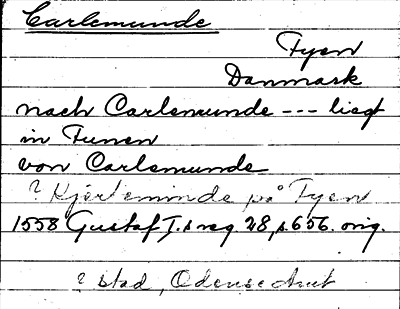 Carlemunde
Fyen
Danmark
nach Carlemunde --- liegt
in Funen
von Carlemunde
? Kjerteminde på Fyen
1558 Gustaf I.s reg. 28, s. 656. orig.
? stad, Odense Amt